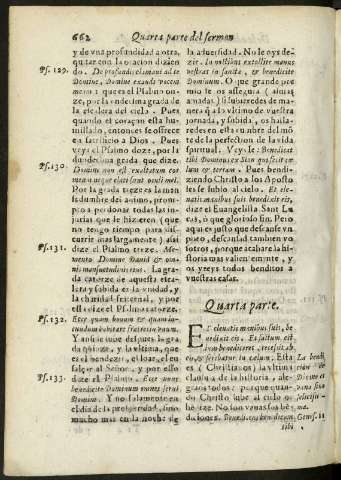 662 Quarta parte del sermon
y de vna profundidad a otra,
quitar con la oracion dizien
Ps. 129. do. De profundis clamaui ad te
Domine, Domine exaudi vocem
meam: que es el Psalmo on-
ze, por la vndecima grada de
la escalera del cielo. Pues
quando el coraçon esta hu-
millado, entonces se offrece
en sacrificio a Dios. Pues
veys aqui el Psalmo doze, por la
Ps. 130. duodecima grada que dize.
Domine non est exaltatum cor
meum neque elati sunt oculi mei.
Por la grada treze es la man
sedumbre del animo, prom-
pto a perdonar todas las in-
jurias que le hizieren (que
no tengo tiempo para dis-
currir mas largamente) assi
Ps. 131. dize el Psalmo treze. Me-
mento Domine Dauid & om-
nis mansuetudinis eius. La gra-
da catorze de aquesta esca-
lera y subida es la vnidad, y
la charidad fraternal, y por
essa dize el Psalmo catorze.
Ps. 132. Ecce quam bonum & quam iu-
cundum habitare fratres in vnum.
Y ansi se sube despues la gra
da quinze, y la vltima, que
es el bendezir, el loar, el en
salçar al Señor, y por esso
Ps. 133. dize el Psalmo. Ecce nunc
benedicite Dominum omnes serui
Domini. Y no solamente en
el dia de la prosperidad, sino
mucho mas en la noche de
la aduersidad. No le oys de-
zir. In noctibus extollite manus
vestras in sancta, & benedicite
Dominum. O que grande pre
mio os le asseguro (almas
amadas) si subieredes de ma-
nera que a lo vltimo de vuestra
jornada, y subida, os halla-
redes en esta cumbre del mõ-
te de la perfection de la vida
spiritual. Veysle: Benedicat
tibi Dominus ex Sion qui fecit cæ-
lum & terram. Pues bendi-
ziendo Christo a los Aposto-
les se subio al cielo. Et ele-
uatis manibus suis benedixit eis,
dize el Euangelista Sant Lu
cas, ò que glorioso fin. Pero
aqui es justo que descanse vn
poco, descansad tambien vo
sotros, porque acabare la his-
toria mas valientemente, y
os yreys todos benditos a
vuestras casas.
Quarta parte.
Et eleuatis manibus suis, be
nedixit eis. Et factum est
dum benediceret, recessit ab
eis, & ferebatur in cælum. Esta
es (Christianos) la vltima
clausula de la historia, ale-
graos todos: porque quan-
do Christo sube al cielo os
La bendi
cion de
Diuino es
vana sino
solicitissi-
ma.
Genes. 11
sibi